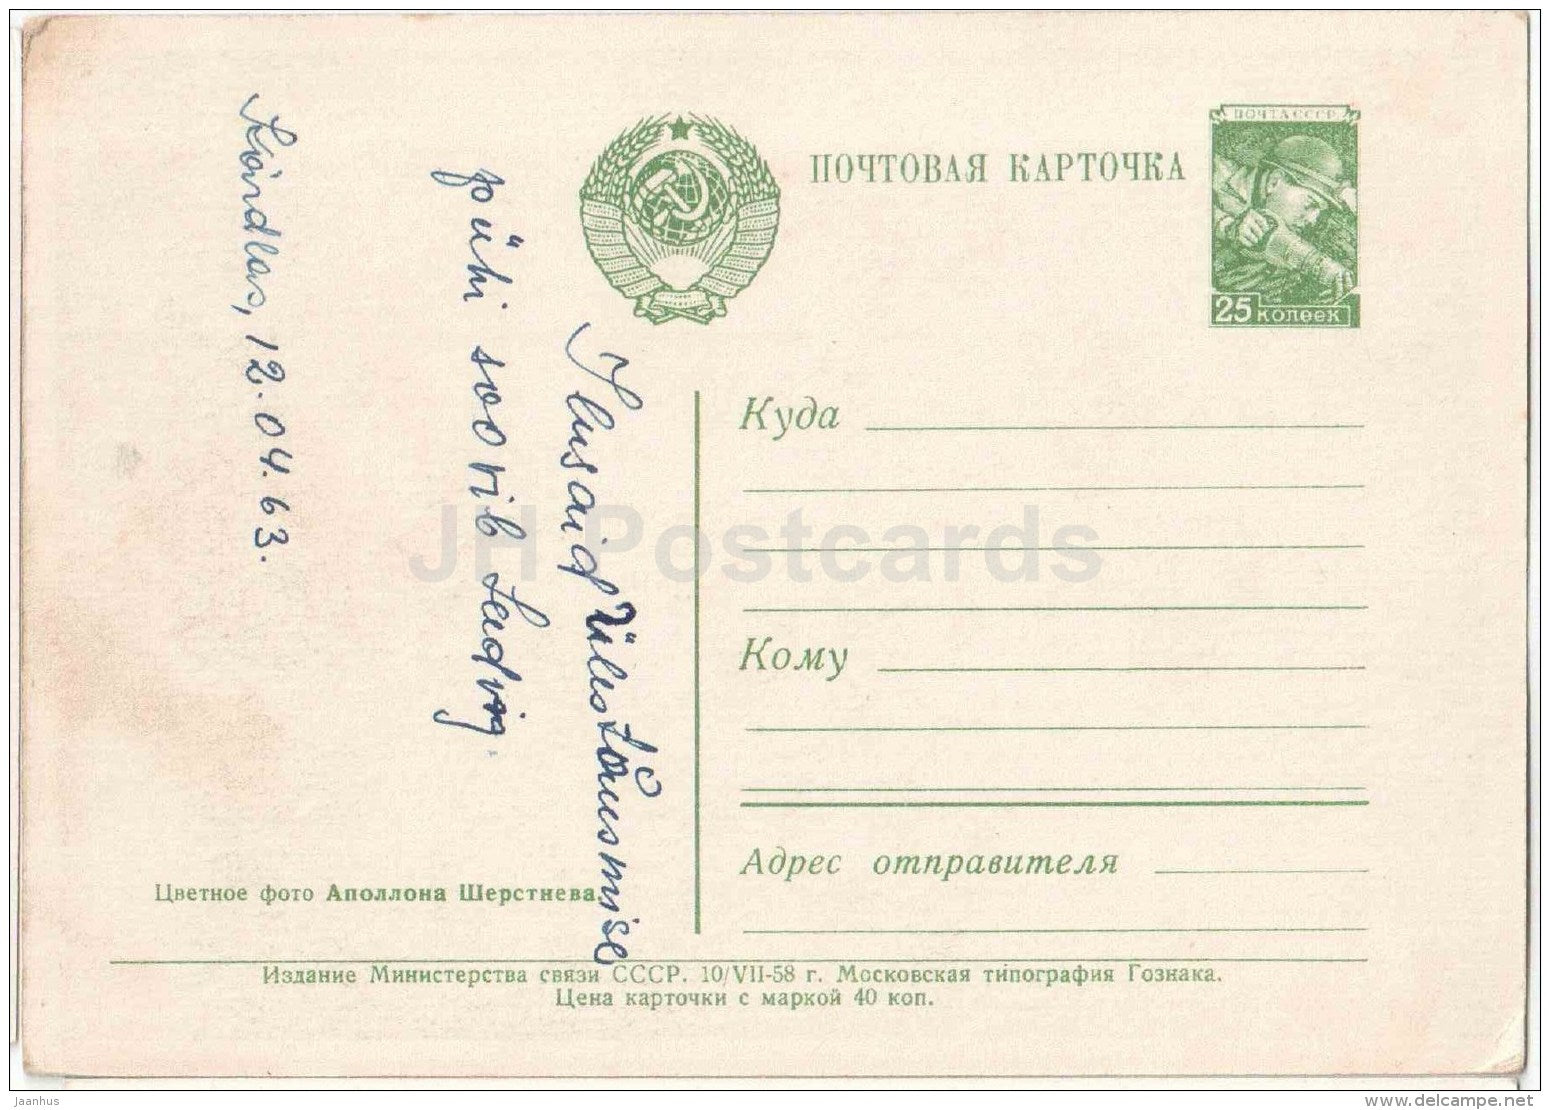 ПОЧТА СССР
ПОЧТОВАЯ КАРТОЧКА
25 копеек
Ilusaid Ülestõusmise
pühi soovib Ludvig.
Kärdlas, 12.04.63.
Куда
Кому
Адрес отправителя
Цветное фото Аполлона Шерстнева.
Издание Министерства связи СССР. 10/VII-58 г. Московская типография Гознака.
Цена карточки с маркой 40 коп.
JH Postcards
Jaanhus
www.delcampe.net